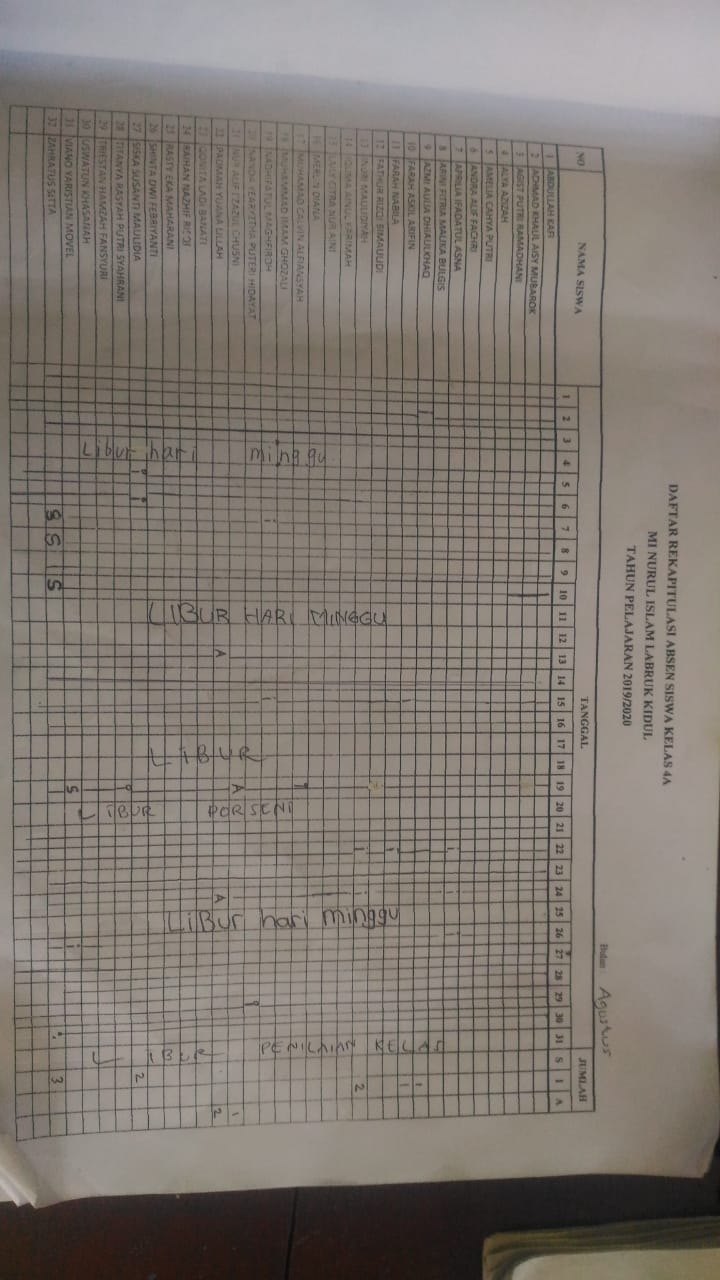 DAFTAR REKAPITULASI ABSEN SISWA KELAS 4A
MI NURUL ISLAM LABRUK KIDUL
TAHUN PELAJARAN 2019/2020
Bulan : Agustus
NO NAMA SISWA TANGGAL JUMLAH
1 2 3 4 5 6 7 8 9 10 11 12 13 14 15 16 17 18 19 20 21 22 23 24 25 26 27 28 29 30 31 S I A
1 ABDULLAH KAFI
2 ACHMAD KHAUL AISY MUBAROK
3 AGIST PUTRI RAMADHANI
4 ALYA AZIZAH
5 AMELIA CAHYA PUTRI
6 ANDRA ALIF FACHRI
7 APRILIA IFADATUL ASNA
8 ARINI FITRIA MALIKA BULGIS
9 AZMI AULIA DHIAULKHAQ
10 FARAH ASKIL ARIFIN
11 FARAH NABILA
12 FATHUR RIZQI BIMAULUDI
13 MAULIDIYAH 2
14
15 NUR AINI
16 DIANA
17 MUHAMAD CALVIN ALFIANSYAH
18 MUHAMMAD IMAM GHOZALI
19
20 PUTERI HIDAYAT
21 CHUSNI A
22 FADIMAH YUANA LILLAH A A 2
23
24 RAIHAN NAZHIF RIZQI
25 RASTY EKA MAHARANI
26 SHINTA DWI FEBRIYANTI
27 SISKA SUSANTI MAULIDIA 2
28 TITANYA RASYAH PUTRI SYAHRANI
29 TRESTAN HAMZAH FANSYURI
30 USWATUN KHASANAH
31 VIANO YARISTIAN MOVEL S
32 ZAHRATUS SITTA S S S 3
Libur hari minggu
LIBUR HARI MINGGU
LIBUR
LIBUR PORSENI
LIBUR hari minggu
LIBUR PENILAIAN KELAS